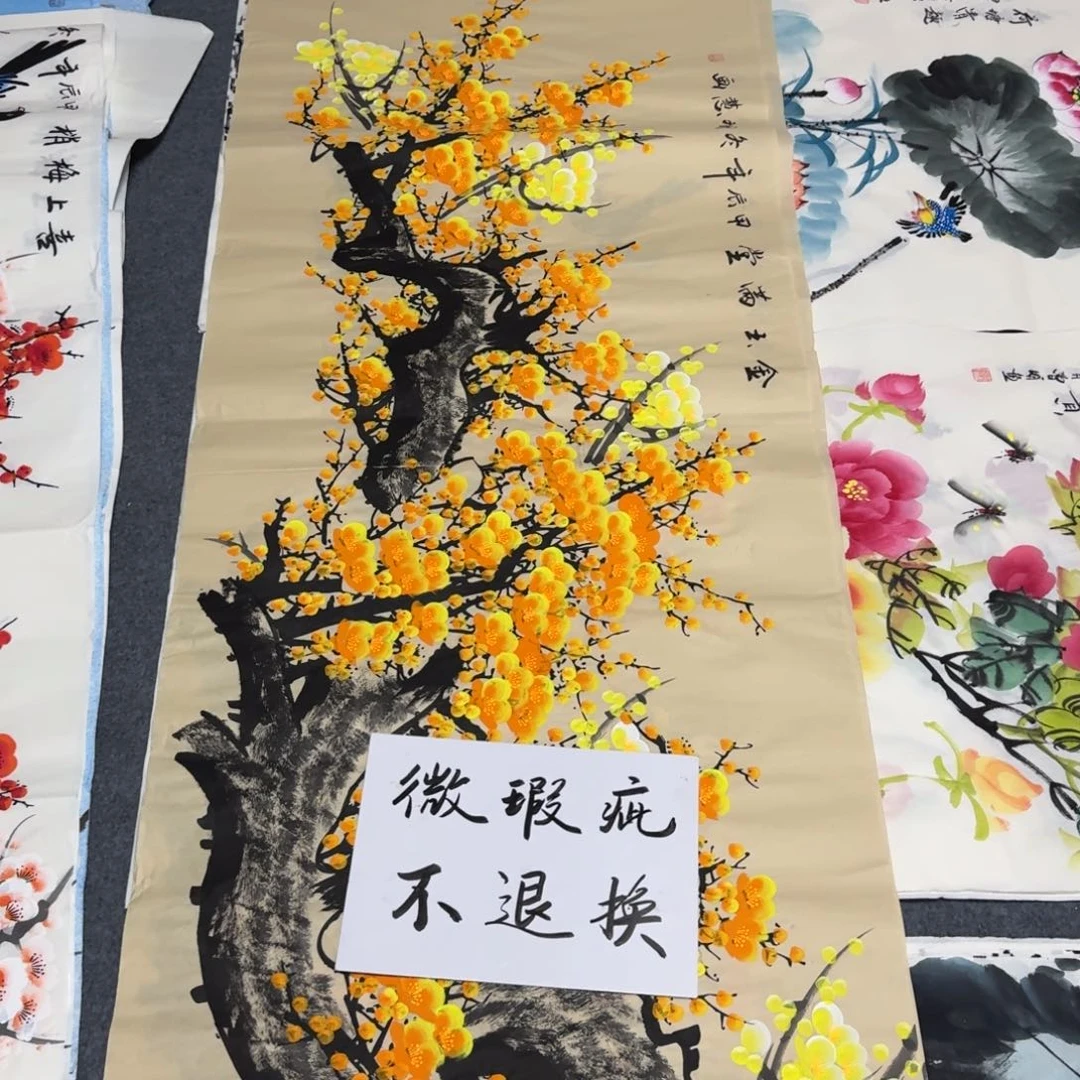 微瑕疵
不退换
金玉满堂 甲辰年冬
慧画
喜上梅梢 甲辰年
荷塘清趣